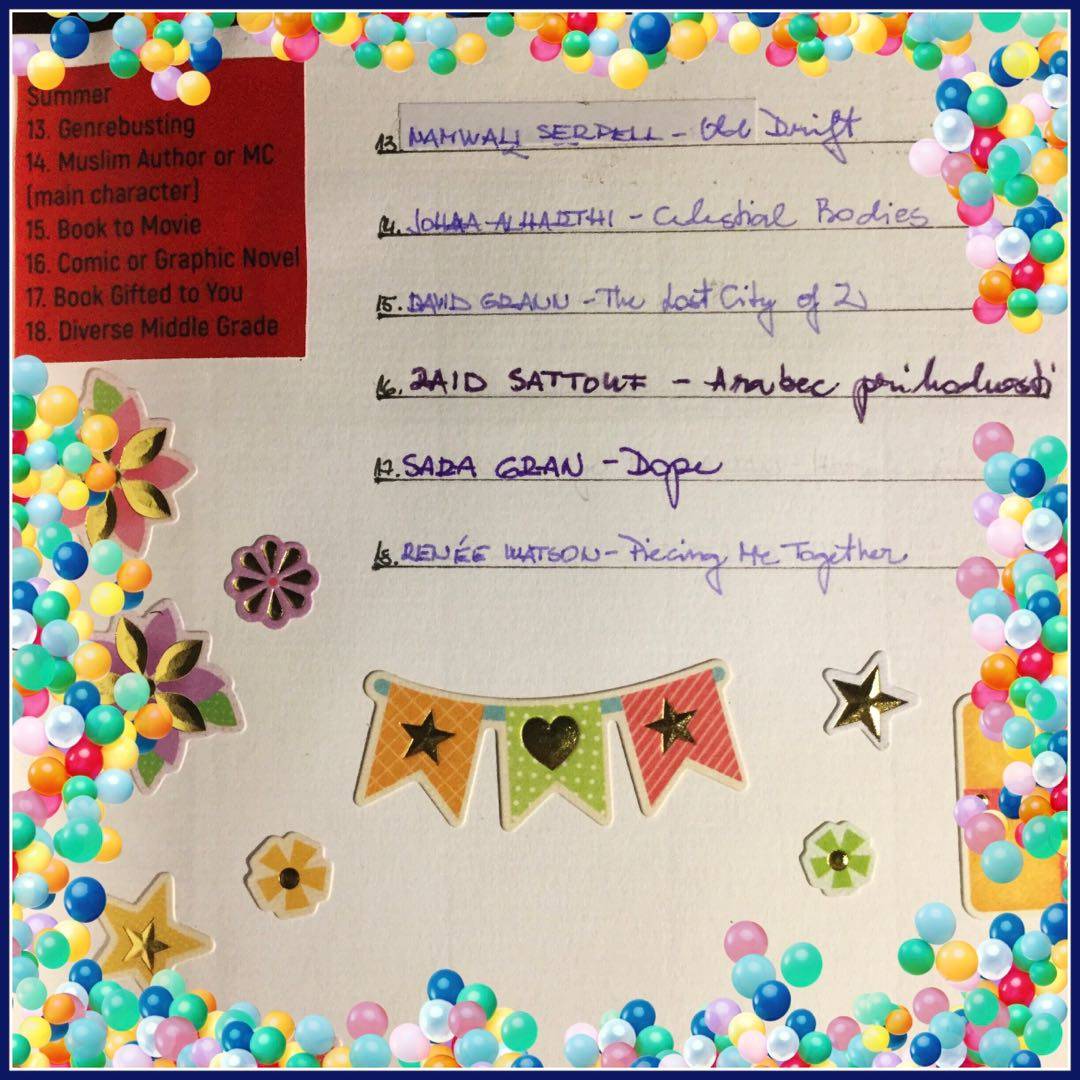 Summer
13. Genrebusting
14. Muslim Author or MC
(main character)
15. Book to Movie
16. Comic or Graphic Novel
17. Book Gifted to You
18. Diverse Middle Grade
13. NAMWALI SERPELL - Old Drift
14. JOHAA ALHARTHI - Celestial Bodies
15. DAVID GRANN - The Lost City of Z
16. RAID SATTOUF - Arabec prihodnosti
17. SARA GRAN - Dope
18. RENÉE WATSON - Piecing Me Together